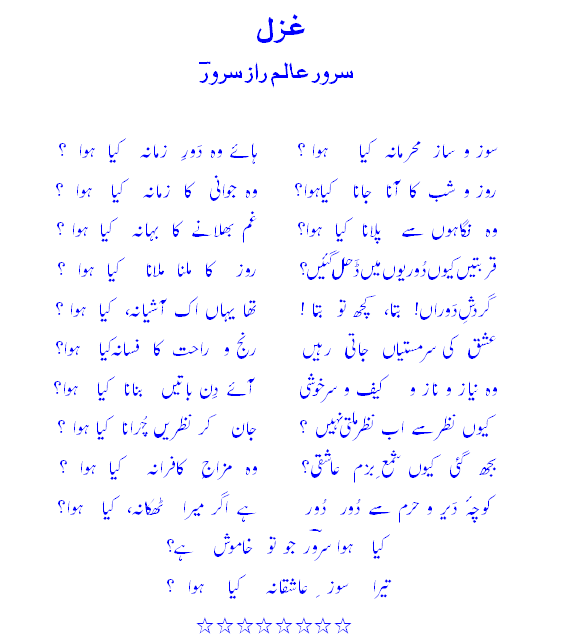 غزل
سرور عالم راز سرورؔ
سوز و ساز محرمانہ کیا ہوا ؟ ہائے وہ دَورِ زمانہ کیا ہوا ؟
روز و شب کا آنا جانا کیا ہوا؟ وہ جوانی کا زمانہ کیا ہوا ؟
وہ نگاہوں سے پلانا کیا ہوا؟ غم بھلانے کا بہانہ کیا ہوا ؟
قربتیں کیوں دُوریوں میں ڈَھل گئیں؟ روز کا ملنا ملانا کیا ہوا ؟
گردشِ دَوراں! بتا، کچھ تو بتا ! تھا یہاں اک آشیانہ، کیا ہوا ؟
عشق کی سرمستیاں جاتی رہیں رنج و راحت کا فسانہ کیا ہوا؟
وہ نیاز و ناز و کیف و سرخوشی آئے دِن باتیں بنانا کیا ہوا؟
کیوں نظر سے اب نظر ملتی نہیں ؟ جان کر نظریں چُرانا کیا ہوا ؟
بجھ گئی کیوں شمعِ بزم عاشقی؟ وہ مزاجِ کافرانہ کیا ہوا ؟
کوچۂ دَیر و حرم سے دُور دُور ہے اگر میرا ٹھکانہ، کیا ہوا؟
کیا ہوا سرورؔ جو تو خاموش ہے؟
تیرا سوزِ عاشقانہ کیا ہوا ؟
☆☆☆☆☆☆☆☆